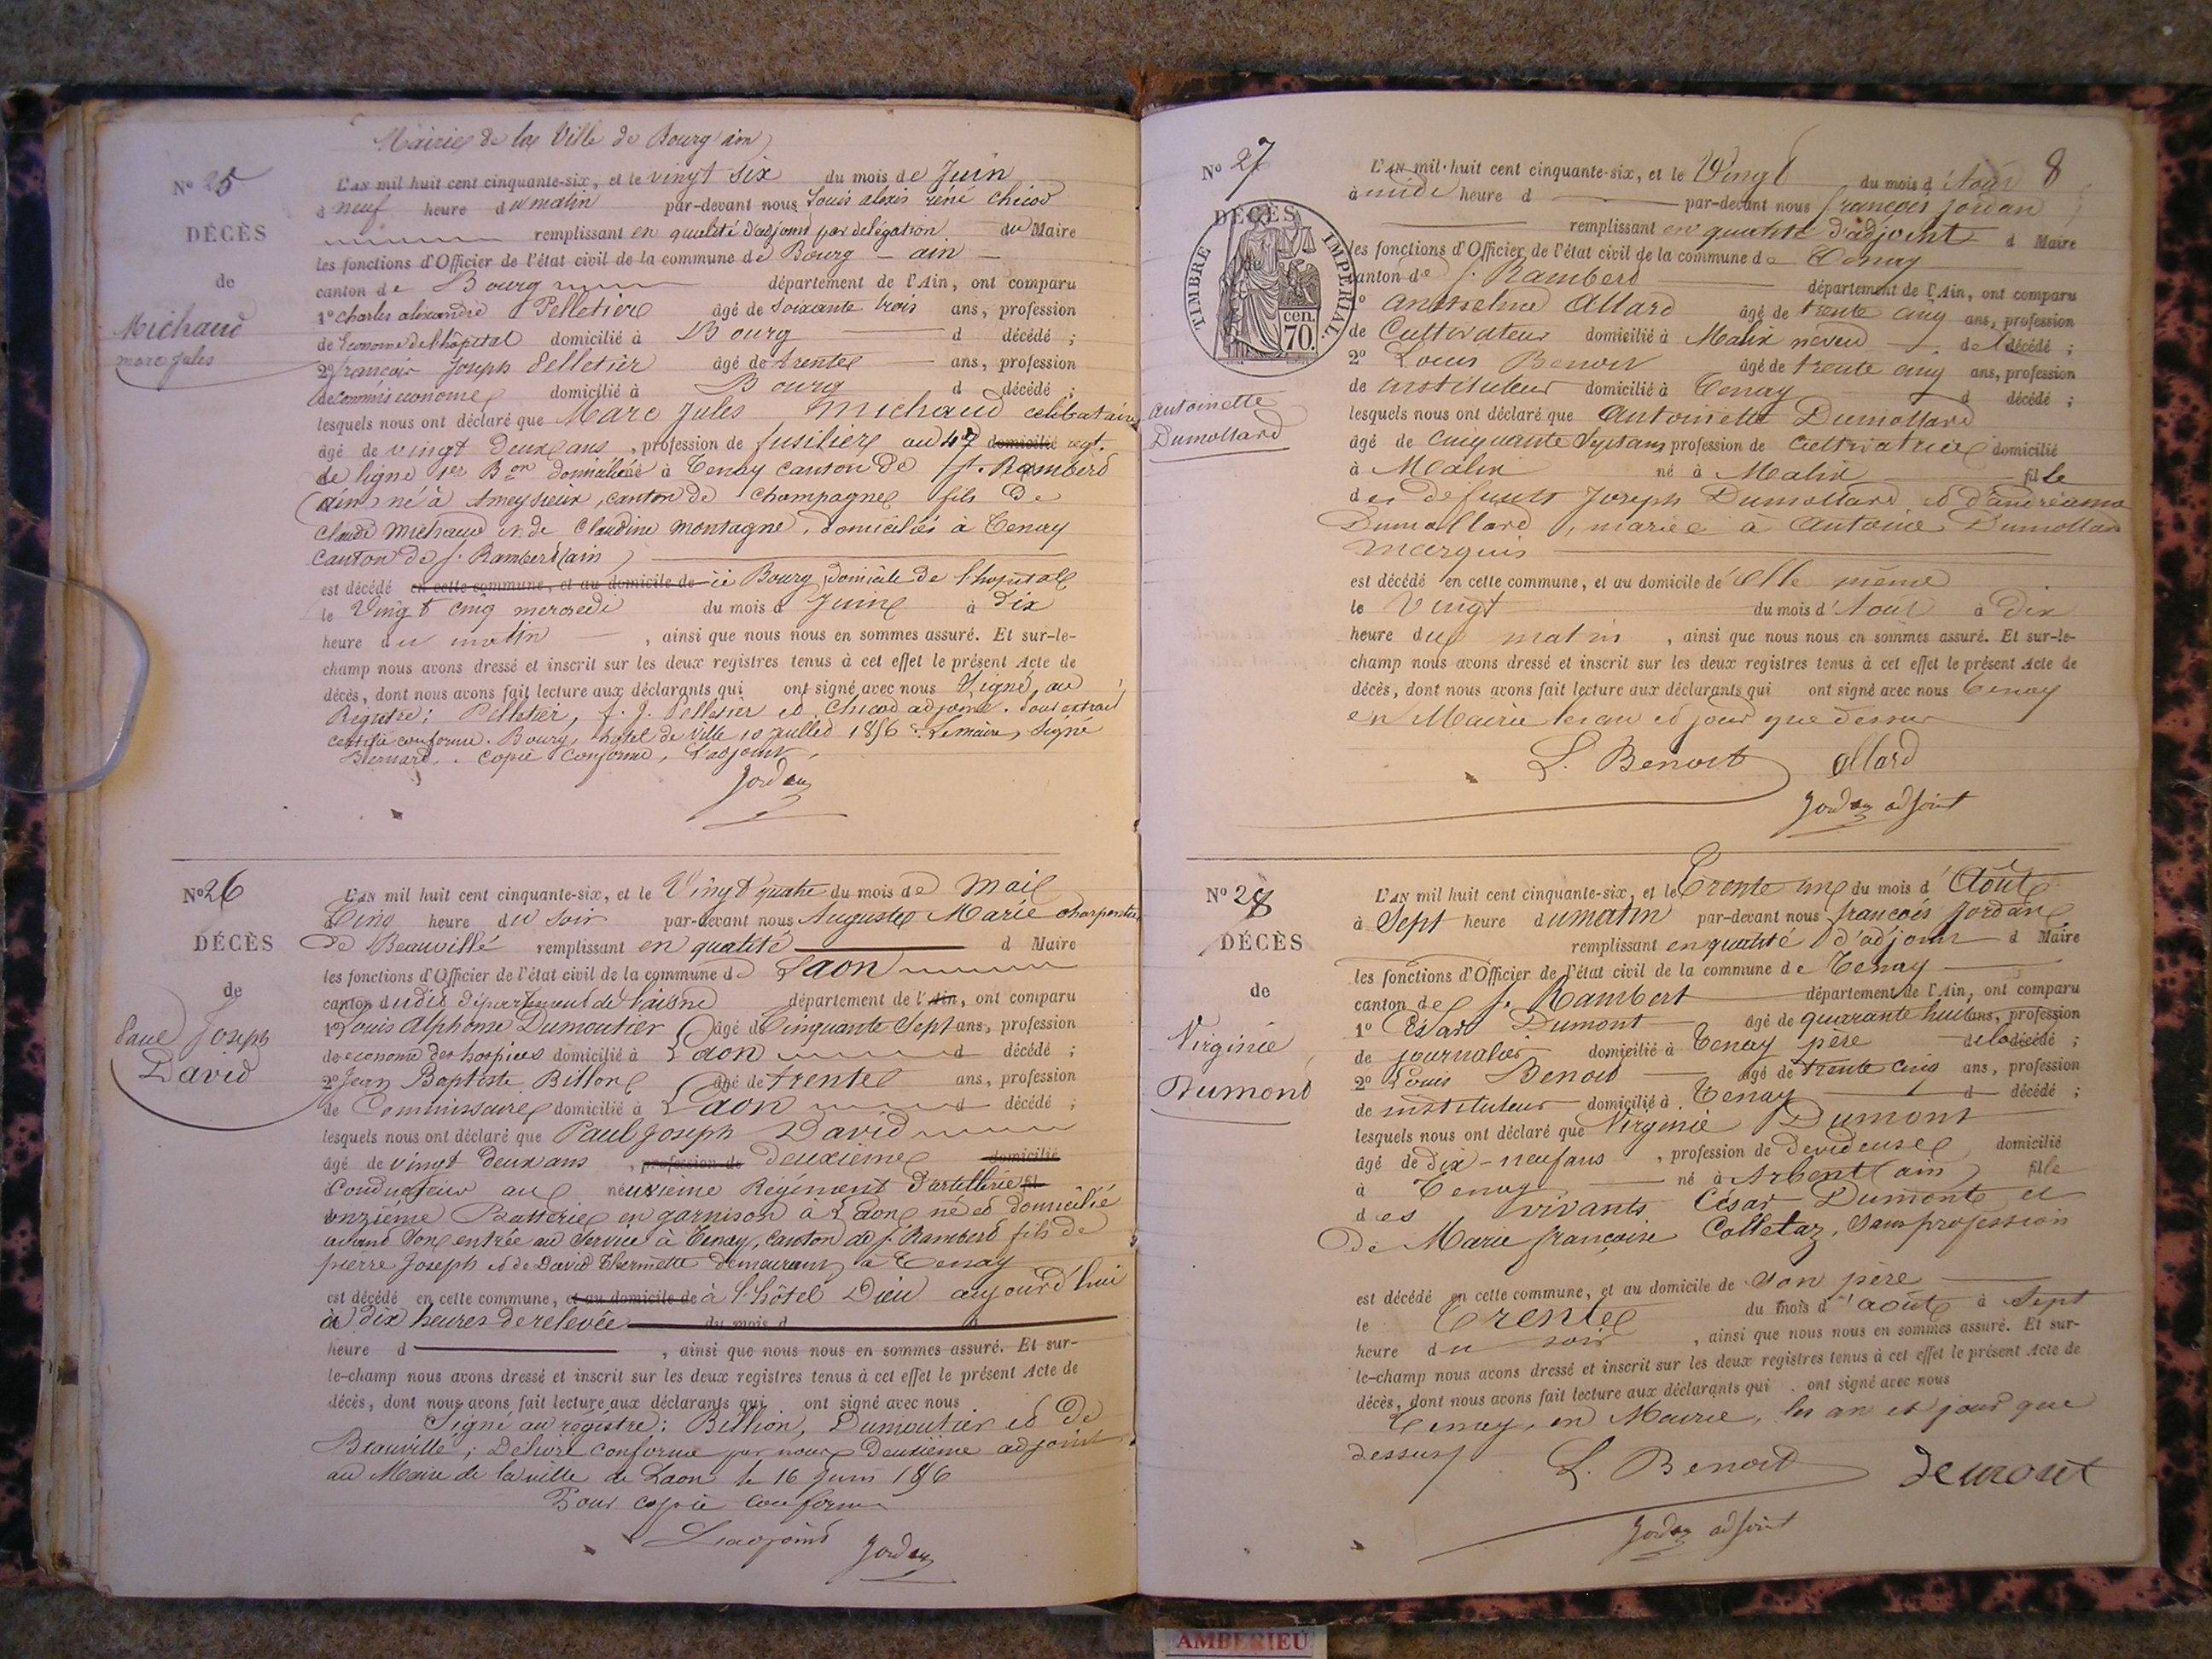 Mairie de la Ville de Bourg (ain)
N° 25
L'AN mil huit cent cinquante-six, et le vingt six du mois de Juin
à neuf heure du matin par-devant nous Louis alexis réné chicod
DÉCÈS
remplissant en qualité d'adjoint par délégation du Maire
les fonctions d'Officier de l'état civil de la commune de Bourg - ain -
de
canton de Bourg département de l'Ain, ont comparu
Michaud
marc Jules
1° charles alexandre Pelletier âgé de soixante trois ans, profession
de Econome de l'hôpital domicilié à Bourg d décédé ;
2° françois Joseph Pelletier âgé de trente ans, profession
de commis econome domicilié à Bourg d décédé ;
lesquels nous ont déclaré que Marc Jules Michaud célibataire
âgé de vingt deux ans, profession de fusilier au 47 domicilié regt.
de ligne 1er Bon domicilié à Tenay canton de St. Rambert
(ain) né à Ameysieux, canton de Champagne fils de
Claude Michaud et de Claudine Montagne, domiciliés à Tenay
Canton de St. Rambert (ain)
est décédé en cette commune, et au domicile de à Bourg, domicile de l'hopital
le Vingt cinq mercredi du mois d Juin à dix
heure du matin, ainsi que nous nous en sommes assuré. Et sur-le-
champ nous avons dressé et inscrit sur les deux registres tenus à cet effet le présent Acte de
décès, dont nous avons fait lecture aux déclarants qui ont signé avec nous Signé, au
Registre: Pelletier, f. J. Pelletier et Chicod adjoint. Pour extrait
certifié conforme. Bourg, hôtel de Ville 10 juillet 1856. Le maire, signé
Bernard. Copie conforme, L'adjoint,
Jordan
N° 26
L'AN mil huit cent cinquante-six, et le Vingt quatre du mois de mai
à Cinq heure du soir par-devant nous Auguste Marie Charpentier
DÉCÈS
de Beauvillé remplissant en qualité d Maire
les fonctions d'Officier de l'état civil de la commune de Laon
de
canton dudit département de l'aisne département de l'Ain, ont comparu
Paul Joseph
David
1° Louis Alphonse Dumoutier âgé de Cinquante Sept ans, profession
de econome des hospices domicilié à Laon d décédé ;
2° Jean Baptiste Billion âgé de trente ans, profession
de Commissaire domicilié à Laon d décédé ;
lesquels nous ont déclaré que Paul Joseph David
âgé de vingt deux ans, profession de Deuxième domicilié
Conducteur au neuvième Régiment d'artillerie fil
onzième Batterie en garnison à Laon né et domicilié
avant son entrée au service à Tenay, canton de St. Rambert fils de
pierre Joseph et de David Thermette demeurant à Tenay
est décédé en cette commune, et au domicile de à l'hôtel Dieu aujourd'hui
à dix heures de relevée du mois d à
heure d, ainsi que nous nous en sommes assuré. Et sur-
le-champ nous avons dressé et inscrit sur les deux registres tenus à cet effet le présent Acte de
décès, dont nous avons fait lecture aux déclarants qui ont signé avec nous
Signé au registre: Billion, Dumoutier et De
Beauvillé; Délivré conforme par nous Deuxième adjoint
au Maire de la ville de Laon le 16 Juin 1856
Pour copie conforme
L'adjoint Jordan
8
N° 27
L'AN mil huit cent cinquante-six, et le Vingt du mois d'Août
à midi heure d par-devant nous françois Jordan
DÉCÈS
remplissant en qualité d'adjoint d Maire
TIMBRE IMPERIAL
cen.
70.
de
les fonctions d'Officier de l'état civil de la commune de Tenay
canton de St. Rambert département de l'Ain, ont comparu
1° Antselme Allard âgé de trente cinq ans, profession
de Cultivateur domicilié à Malix neveu de l décédé ;
2° Louis Benoit âgé de trente cinq ans, profession
de instituteur domicilié à Tenay d décédé ;
Antoinette
Dumollard
lesquels nous ont déclaré que Antoinette Dumollard
âgé de Cinquante Sept ans, profession de Cultivatrice domicilié
à Malix né à Malix fille
des defunts Joseph Dumollard et d'andréanne
Dumollard, mariée à Antoine Dumollard
marquis
est décédé en cette commune, et au domicile de elle même
le Vingt du mois d'Août à dix
heure du matin, ainsi que nous nous en sommes assuré. Et sur-le-
champ nous avons dressé et inscrit sur les deux registres tenus à cet effet le présent Acte de
décès, dont nous avons fait lecture aux déclarants qui ont signé avec nous Tenay
en Mairie les an et jour que dessus
L. Benoit Allard
Jordan adjoint
N° 28
L'AN mil huit cent cinquante-six, et le Trente un du mois d'Août
à Sept heure du matin par-devant nous françois Jordan
DÉCÈS
remplissant en qualité d'adjoint d Maire
les fonctions d'Officier de l'état civil de la commune de Tenay
de
canton de St. Rambert département de l'Ain, ont comparu
Virginie
Dumont
1° César Dumont âgé de quarante huit ans, profession
de journalier domicilié à Tenay père de la décédé ;
2° Louis Benoit âgé de trente cinq ans, profession
de instituteur domicilié à Tenay d décédé ;
lesquels nous ont déclaré que Virginie Dumont
âgé de dix-neuf ans, profession de devideuse domicilié
à Tenay né à Arbent (ain) fille
des vivants César Dumont et
de Marie françoise Colletaz, sans profession
est décédé en cette commune, et au domicile de son père
le Trente du mois d'août à sept
heure du soir, ainsi que nous nous en sommes assuré. Et sur-
le-champ nous avons dressé et inscrit sur les deux registres tenus à cet effet le présent Acte de
décès, dont nous avons fait lecture aux déclarants qui ont signé avec nous
Tenay, en Mairie, les an et jour que
dessus
L. Benoit Deumont
Jordan adjoint
AMBERIEU